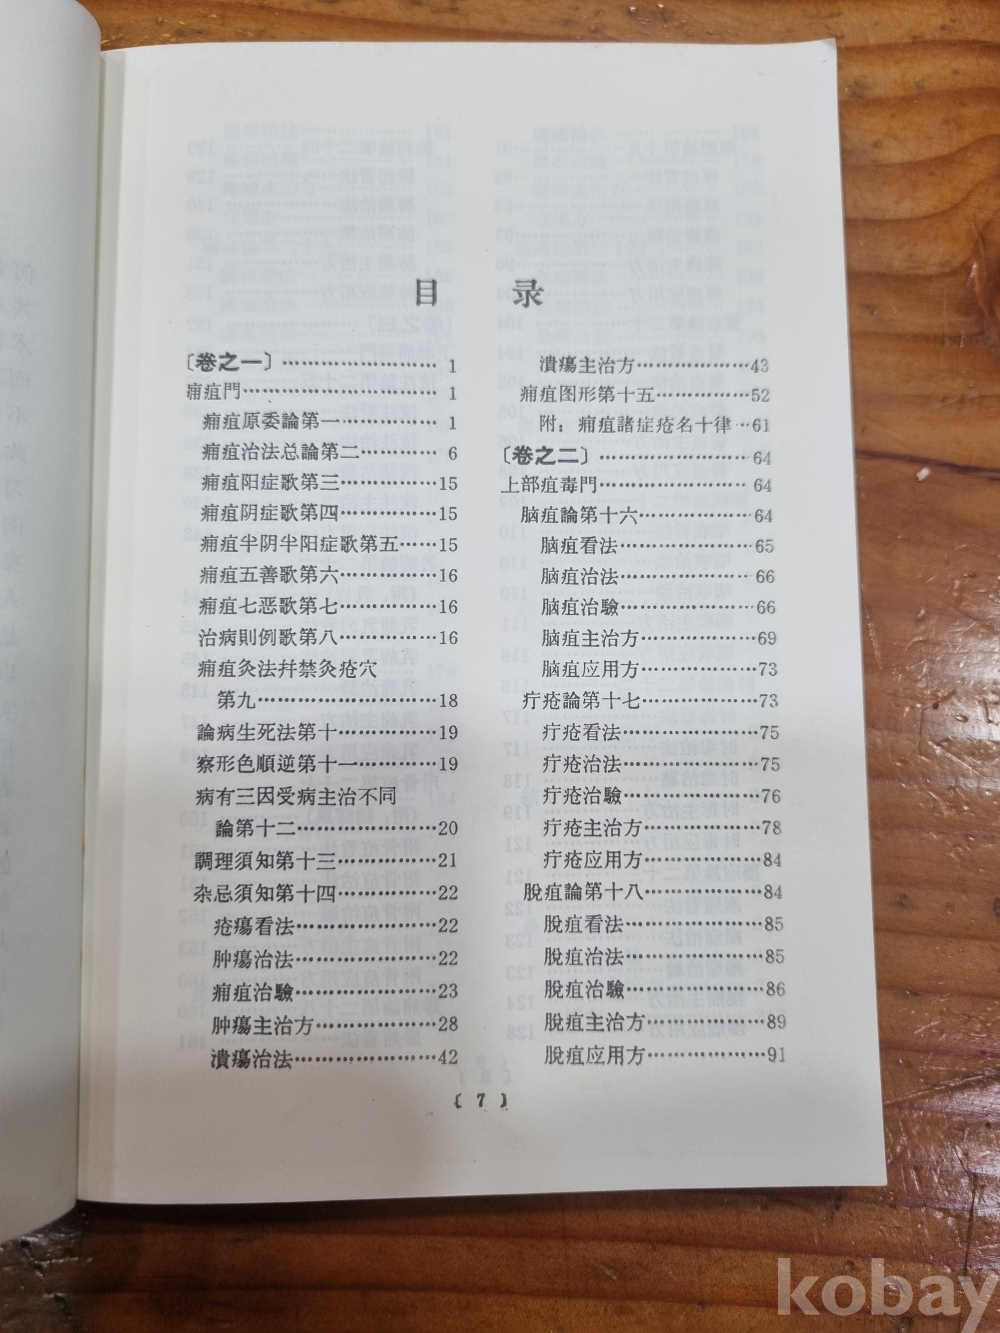 目 录
〔卷之一〕……………………1
痈疽門……………………1
痈疽原委論第一……………1
痈疽治法总論第二…………6
痈疽阳症歌第三……………15
痈疽阴症歌第四……………15
痈疽半阴半阳症歌第五……15
痈疽五善歌第六……………16
痈疽七恶歌第七……………16
治病則例歌第八……………16
痈疽灸法幷禁灸疮穴
第九……………………18
論病生死法第十……………19
察形色順逆第十一…………19
病有三因受病主治不同
論第十二…………………20
調理須知第十三……………21
杂忌須知第十四……………22
疮瘍看法…………………22
肿瘍治法…………………22
痈疽治驗…………………23
肿瘍主治方………………28
潰瘍治法…………………42
潰瘍主治方………………43
痈疽图形第十五……………52
附：痈疽諸症疮名十律…61
〔卷之二〕……………………64
上部疽毒門…………………64
脑疽論第十六………………64
脑疽看法…………………65
脑疽治法…………………66
脑疽治驗…………………66
脑疽主治方………………69
脑疽应用方………………73
疔疮論第十七………………73
疔疮看法…………………75
疔疮治法…………………75
疔疮治驗…………………76
疔疮主治方………………78
疔疮应用方………………84
脫疽論第十八………………84
脫疽看法…………………85
脫疽治法…………………85
脫疽治驗…………………86
脫疽主治方………………89
脫疽应用方………………91
〔 7 〕
kobay